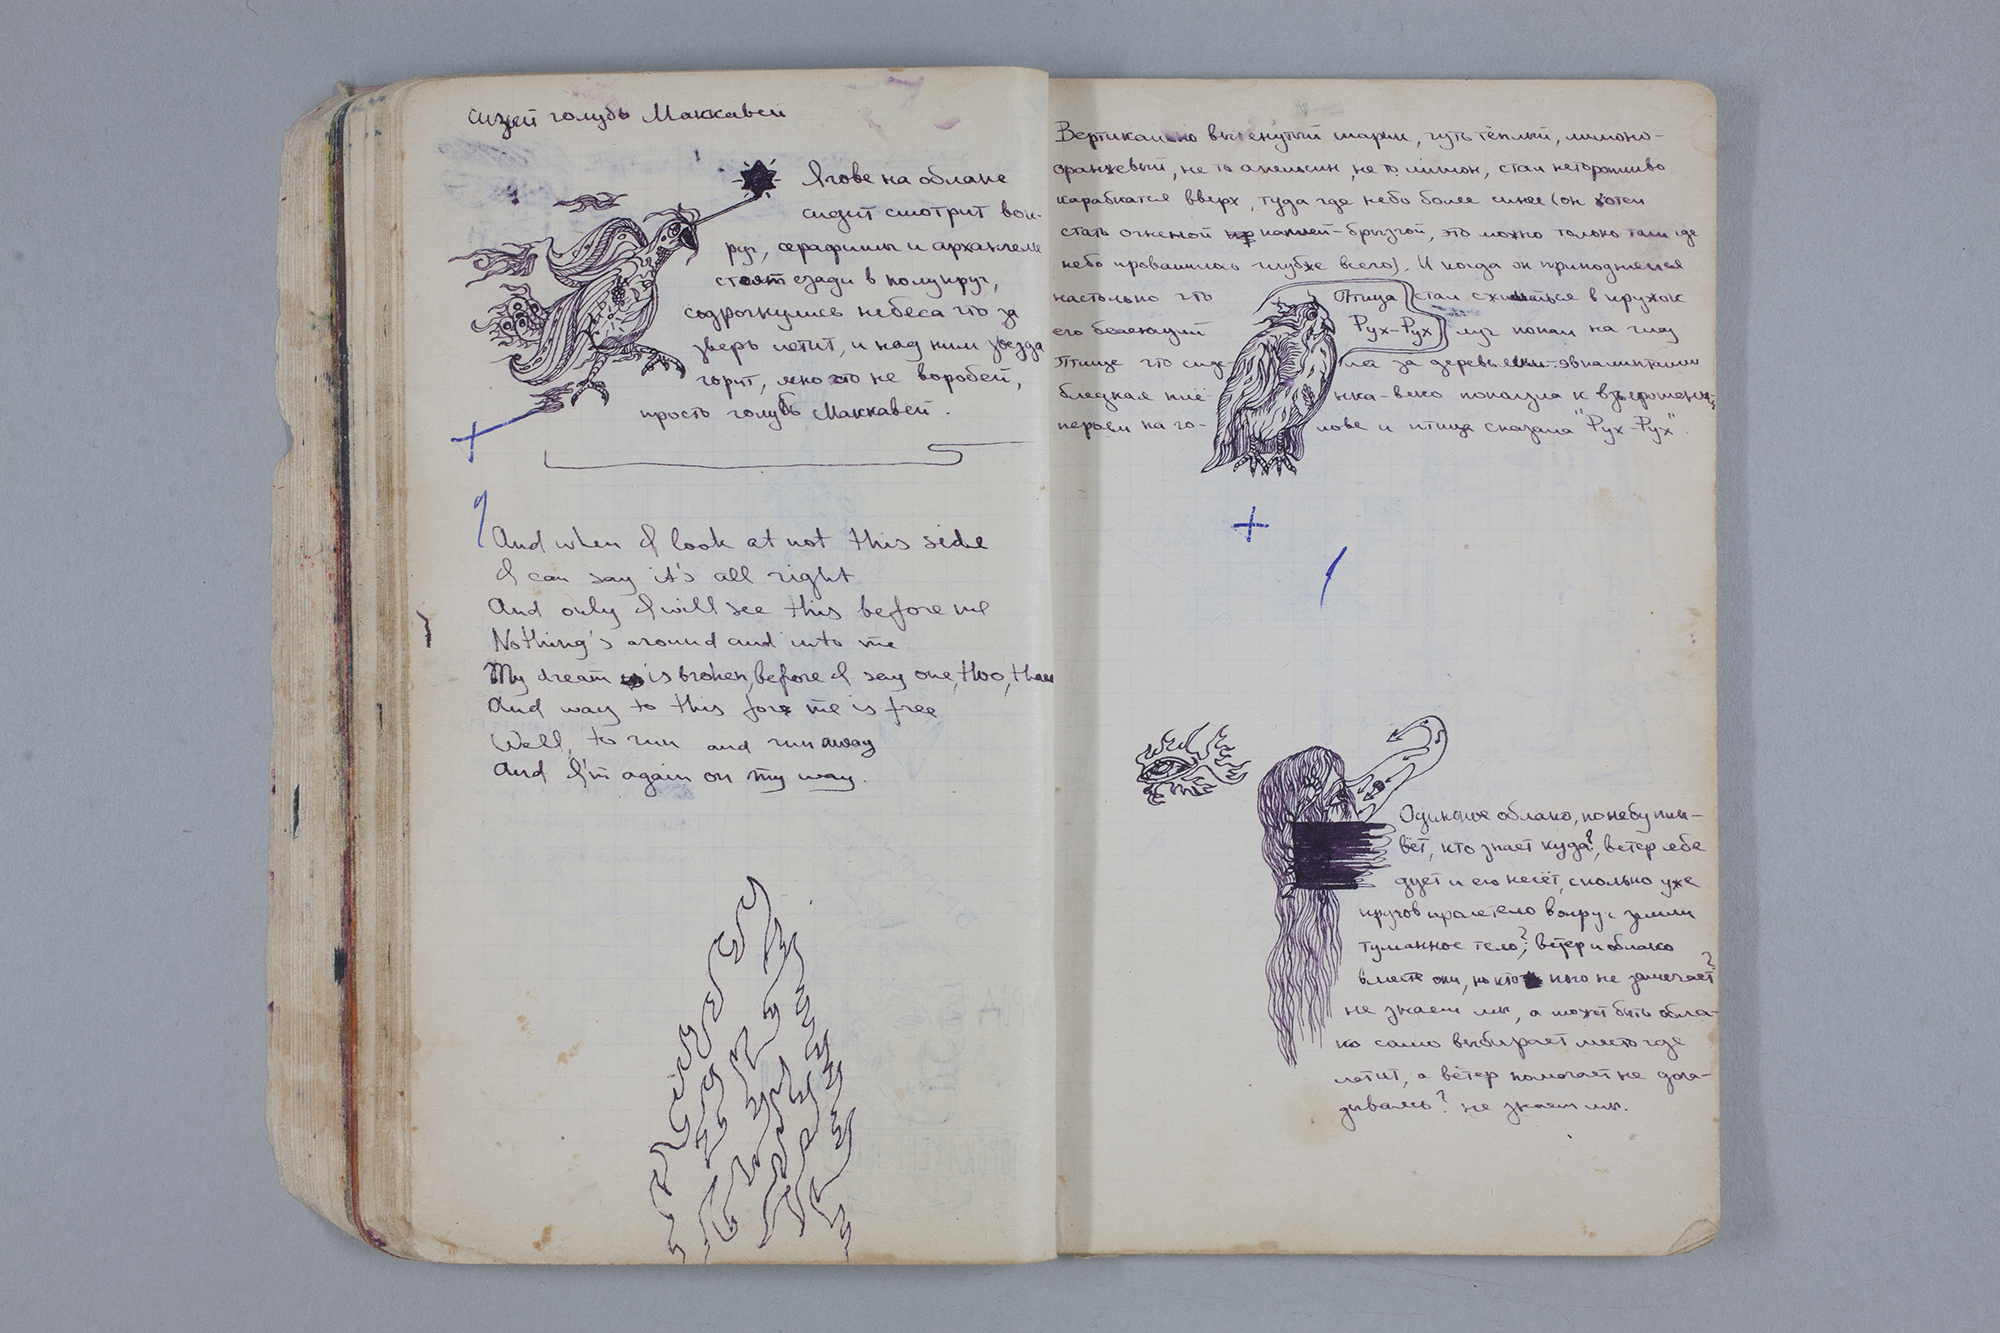 сизый голубь Маккавей
Ягове на облаке
сидит смотрит вок-
руг, серафимы и архангелы
стоят сзади в полукруг,
содрогнулись небеса что за
зверь летит, и над ним звезда
горит, явно это не воробей,
прость голубь Маккавей.
And when I look at not this side
I can say it's all right
And only I will see this before me
Nothing's around and into me
My dream is broken, before I say one, two, three
And way to this fore me is free
Well, to run and run away
And I'm again on my way.
Вертикально вытянутый шарик, чуть тёплый, лимоно-
оранжевый, не то апельсин, не то лимон, стал неторопливо
карабкатся вверх, туда где небо более синее (он хотел
стать огненой каплей-брызгой, это можно только там где
небо провалилось глубже всего). И когда он приподнялся
настолько что Птица стал сжиматься в кружок
его белеющий Рух-Рух луч попал на глаз
Птице что сиде- ла за деревьями-эвкалиптами
бледная плё- нка-веко поползла к взъерошеным
перьям на го- лове и птица сказала "Рух-Рух".
Одинокое облако, по небу плы-
вёт, кто знает куда?, ветер себе
дует и его несёт, сколько уже
кругов пролетело вокруг земли
туманное тело?, ветер и облако
вместе они, но кто кого не замечает?
не знаем мы, а может быть обла-
ко само выбирает место где
летит, а ветер помогает не дога-
дываясь? не знаем мы.